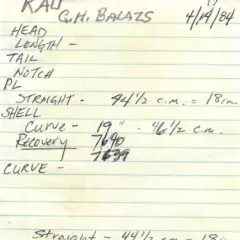 KAU
G.H. BALAZS 4/14/84
HEAD
LENGTH -
TAIL
NOTCH
PL
STRAIGHT - 44 1/2 c.m. = 18in
SHELL
Curve - 19" - 46 1/2 c.m.
Recovery 7640
7639
CURVE -
Straight - 44 1/2 c.m. - 18in